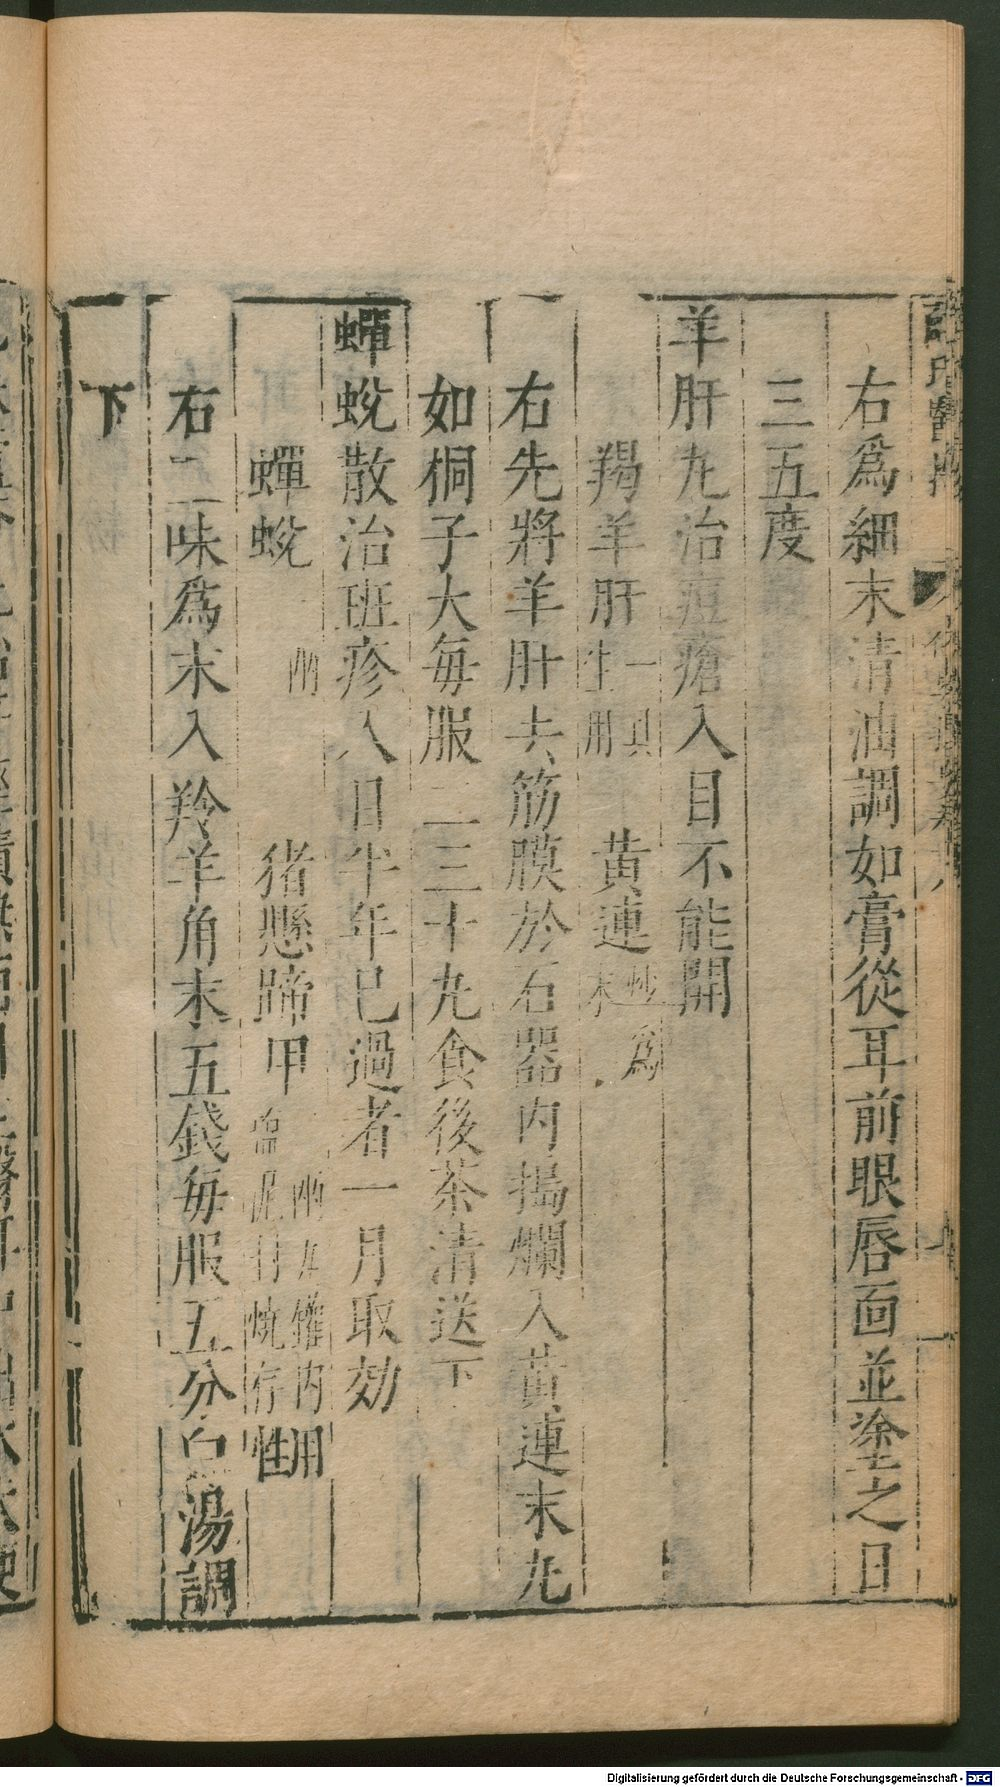 右爲細末清油調如膏從耳前眼唇面並塗之日
三五度
羊肝九治痘瘡入目不能開
羯羊肝一具生用 黃連炒爲末
右先將羊肝去筋膜於石器内搗爛入黃連末九
如桐子大每服二三十九食後茶清送下
蟬蛻散治班疹入目半年已過者一月取効
蟬蛻一兩 猪懸蹄甲二兩 罐内 燒存性用
右二味爲末入羚羊角末五錢每服五分白湯調
下
Digitalisierung gefördert durch die Deutsche Forschungsgemeinschaft - DFG